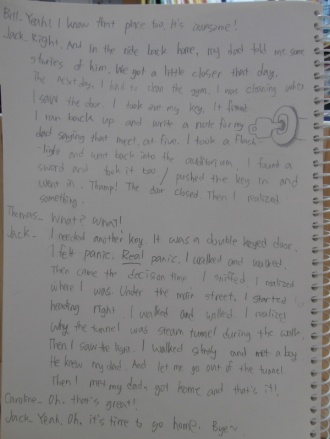 Bill. Yeah! I know that place too. It's awesome!
Jack. Right. And in the ride back home, my dad told me some
stories of him. We got a little closer that day.
The next day, I had to clean the gym. I was cleaning until
I saw the door. I took out my key. It fitted.
I ran back up and wrote a note for my
dad saying that meet at five. I took a flash
light and went back into the auditorium. I found a
sword and took it too. I pushed the key in and
went in. Thump! The door closed. Then I realized
something.
Thomas- What? What?!
Jack- I needed another key. It was a double keyed door.
I felt panic. Real panic. I walked and walked.
Then came the decision time. I sniffed. I realized
where I was. Under the main street. I started
heading right. I walked and walked. I realized
why the tunnel was steam tunnel during the
Then I saw I walked slowly and met a boy.
He knew my dad. And let me go out of the tunnel.
Then I met my dad, got home and that's it!
Caroline- Oh, that's great!
Jack- Yeah. Oh, it's time to go home. Bye~